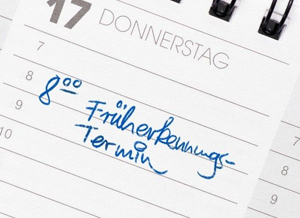 17 DONNERSTAG
7
8
8⁰⁰ Früherkennungs-
9
Termin
10